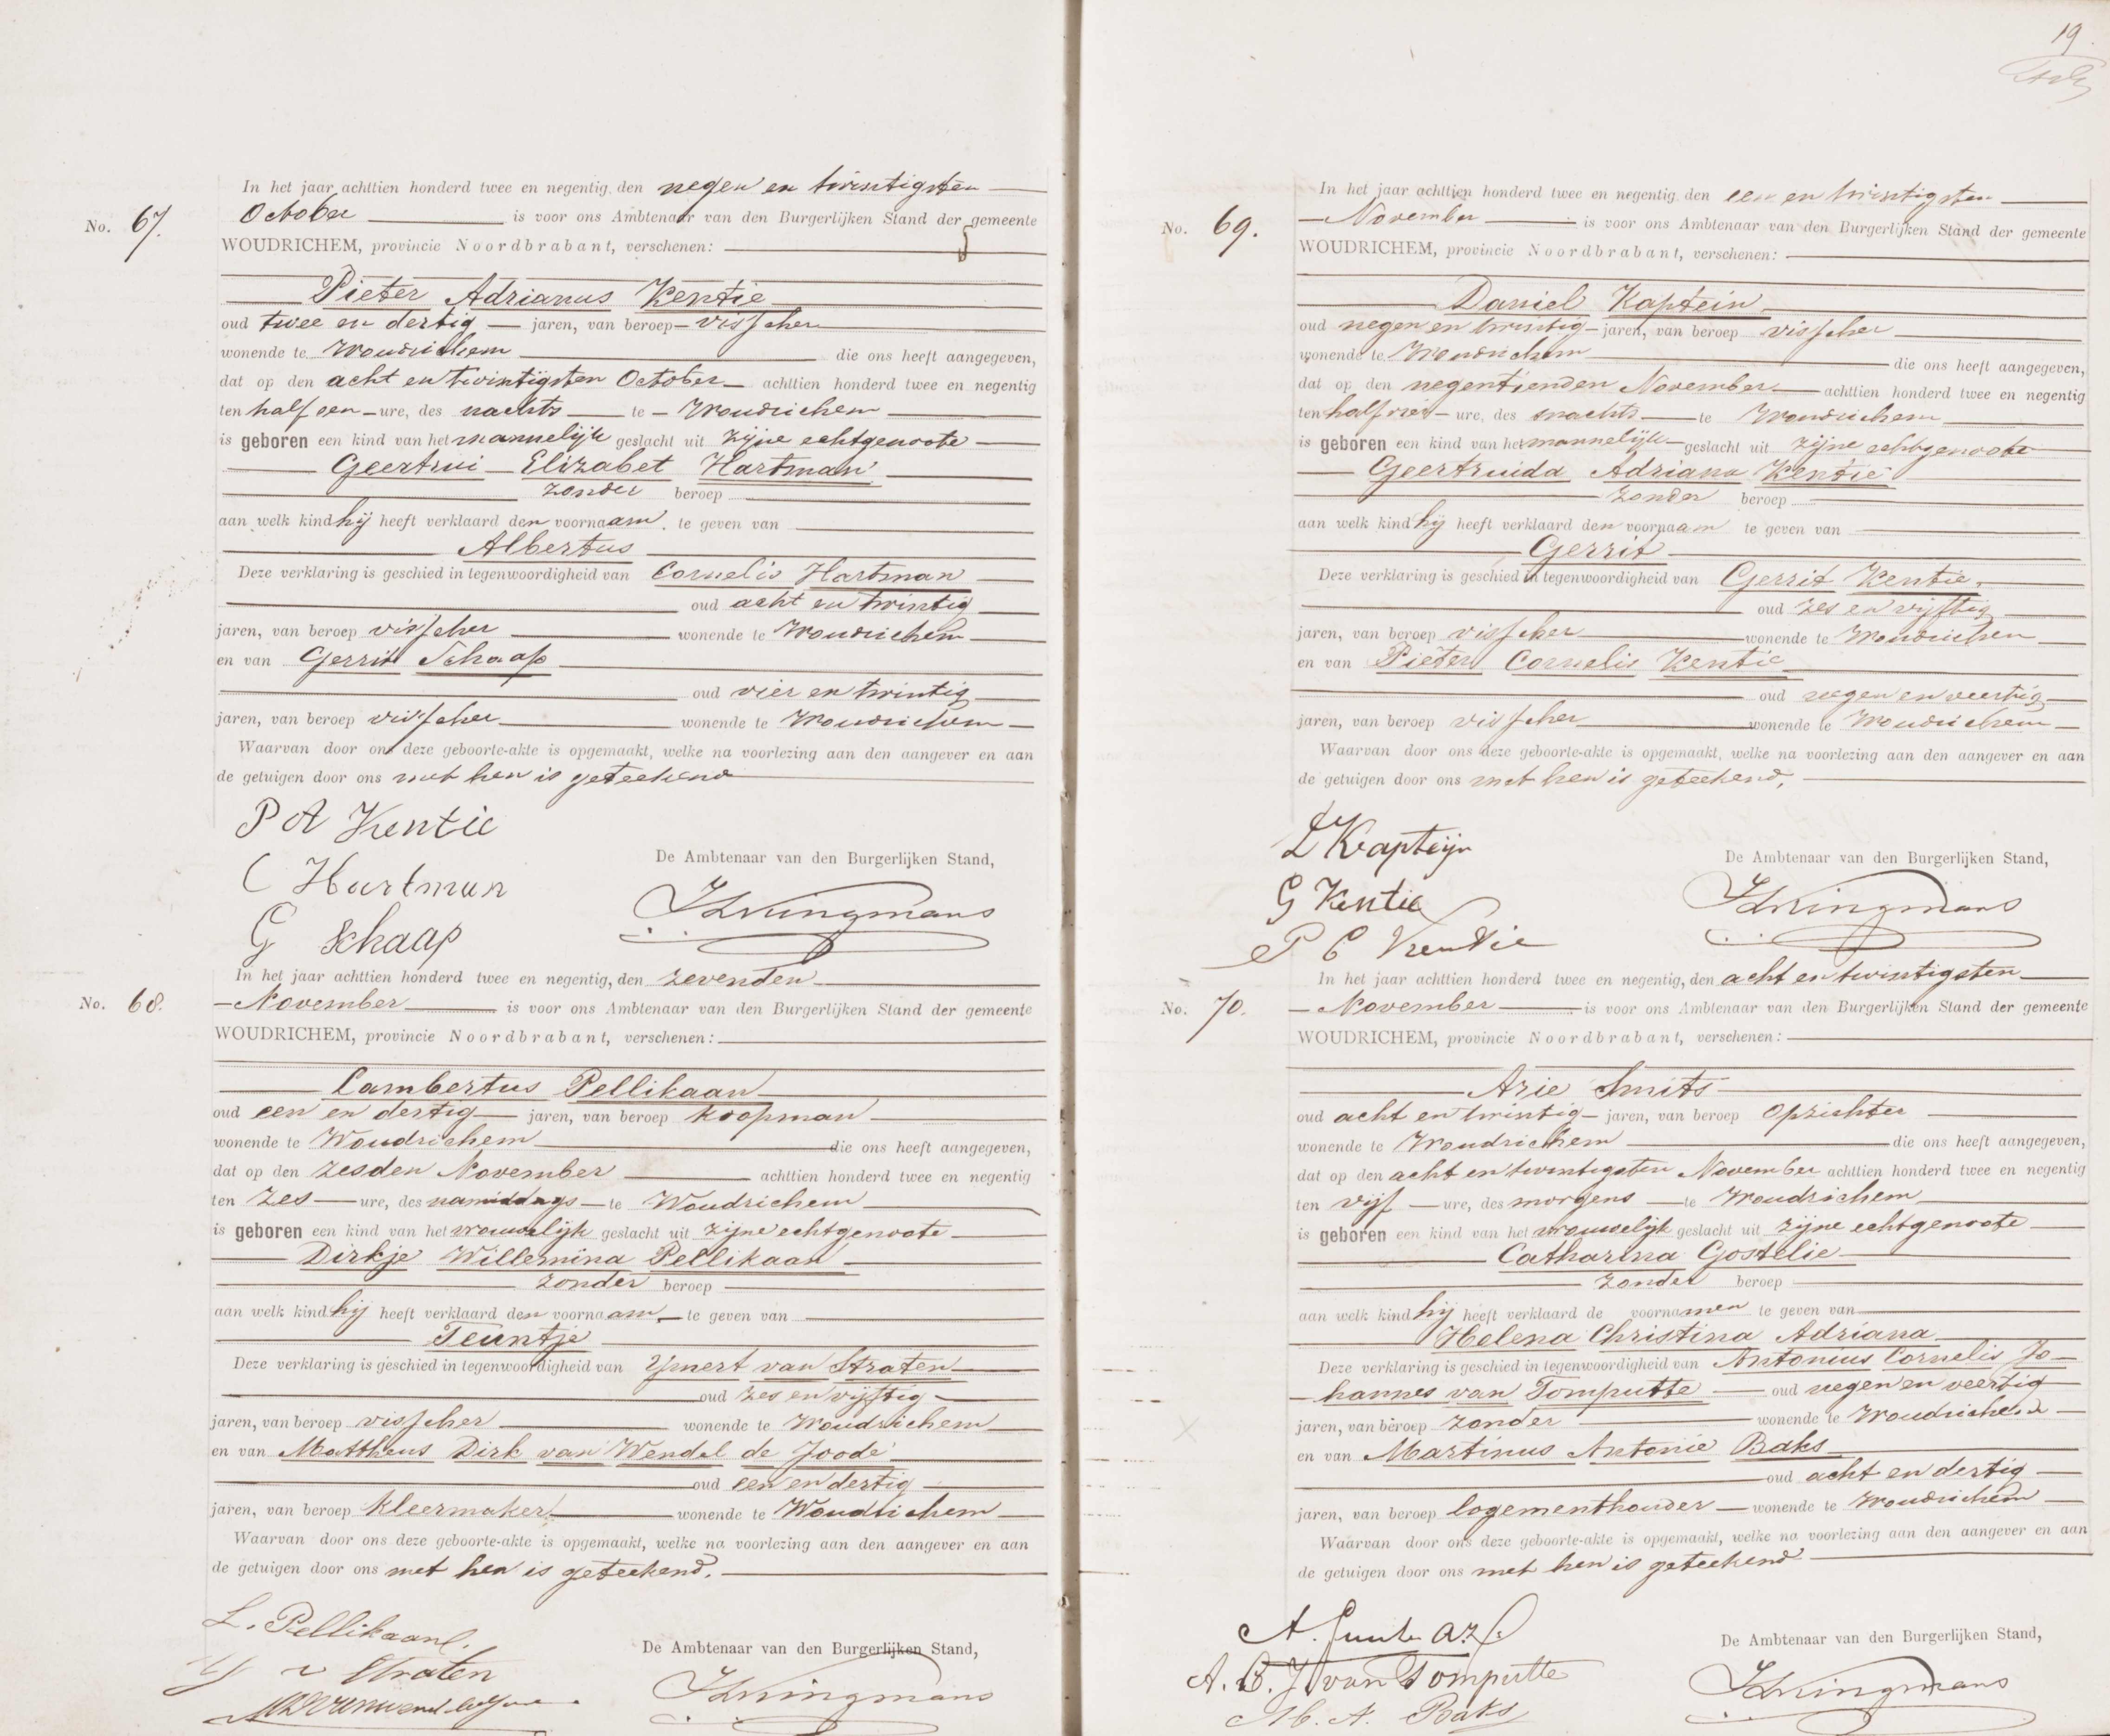 In het jaar achttien honderd twee en negentig, den negen en twintigsten
No. 67. October is voor ons Ambtenaar van den Burgerlijken Stand der gemeente
WOUDRICHEM, provincie Noordbrabant, verschenen:
Pieter Adrianus Kentie
oud twee en dertig jaren, van beroep visscher
wonende te Woudrichem die ons heeft aangegeven,
dat op den acht en twintigsten October achttien honderd twee en negentig
ten half een ure, des nachts te Woudrichem
is geboren een kind van het mannelijk geslacht uit zijne echtgenoote
Geertrui Elizabet Hartman
zonder beroep
aan welk kind hij heeft verklaard den voornaam te geven van
Albertus
Deze verklaring is geschied in tegenwoordigheid van Cornelis Hartman
oud acht en twintig
jaren, van beroep visscher wonende te Woudrichem
en van Gerrit Schaap
oud vier en twintig
jaren, van beroep visscher wonende te Woudrichem
Waarvan door ons deze geboorte-akte is opgemaakt, welke na voorlezing aan den aangever en aan
de getuigen door ons met hen is geteekend
P A Kentie
De Ambtenaar van den Burgerlijken Stand,
C Hartman
Kingmans
G Schaap
In het jaar achttien honderd twee en negentig, den zevenden
No. 68. November is voor ons Ambtenaar van den Burgerlijken Stand der gemeente
WOUDRICHEM, provincie Noordbrabant, verschenen:
Lambertus Pellikaan
oud een en dertig jaren, van beroep koopman
wonende te Woudrichem die ons heeft aangegeven,
dat op den zesden November achttien honderd twee en negentig
ten zes ure, des namiddags te Woudrichem
is geboren een kind van het vrouwelijk geslacht uit zijne echtgenoote
Dirkje Willemina Pellikaan
zonder beroep
aan welk kind hij heeft verklaard den voornaam te geven van
Teuntje
Deze verklaring is geschied in tegenwoordigheid van Ymert van Straten
oud zes en vijftig
jaren, van beroep visscher wonende te Woudrichem
en van Mattheus Dirk van Wendel de Joode
oud een en dertig
jaren, van beroep kleermaker wonende te Woudrichem
Waarvan door ons deze geboorte-akte is opgemaakt, welke na voorlezing aan den aangever en aan
de getuigen door ons met hen is geteekend.
L. Pellikaan
De Ambtenaar van den Burgerlijken Stand,
Y v Straten
Kingmans
19
In het jaar achttien honderd twee en negentig, den een en twintigsten
No. 69. November is voor ons Ambtenaar van den Burgerlijken Stand der gemeente
WOUDRICHEM, provincie Noordbrabant, verschenen:
Daniel Kaptein
oud negen en twintig jaren, van beroep visscher
wonende te Woudrichem die ons heeft aangegeven,
dat op den negentienden November achttien honderd twee en negentig
ten half ure, des nachts te Woudrichem
is geboren een kind van het mannelijk geslacht uit zijne echtgenoote
Geertruida Adriana Kentie
zonder beroep
aan welk kind hij heeft verklaard den voornaam te geven van
Gerrit
Deze verklaring is geschied in tegenwoordigheid van Gerrit Kentie,
oud zes en vijftig
jaren, van beroep visscher wonende te Woudrichem
en van Pieter Cornelis Kentie
oud negen en veertig
jaren, van beroep visscher wonende te Woudrichem
Waarvan door ons deze geboorte-akte is opgemaakt, welke na voorlezing aan den aangever en aan
de getuigen door ons met hen is geteekend,
Kapteijn
De Ambtenaar van den Burgerlijken Stand,
G Kentie
Kingmans
P C Kentie
In het jaar achttien honderd twee en negentig, den acht en twintigsten
No. 70. November is voor ons Ambtenaar van den Burgerlijken Stand der gemeente
WOUDRICHEM, provincie Noordbrabant, verschenen:
Arie Smits
oud acht en twintig jaren, van beroep opzichter
wonende te Woudrichem die ons heeft aangegeven,
dat op den acht en twintigsten November achttien honderd twee en negentig
ten vijf ure, des morgens te Woudrichem
is geboren een kind van het vrouwelijk geslacht uit zijne echtgenoote
Catharina Gostelie
zonder beroep
aan welk kind hij heeft verklaard de voornamen te geven van
Helena Christina Adriana
Deze verklaring is geschied in tegenwoordigheid van Antonius Cornelis Jo-
hannes van Tomputte oud negen en veertig
jaren, van beroep zonder wonende te Woudrichem
en van Martinus Antonie Baks
oud acht en dertig
jaren, van beroep logementhouder wonende te Woudrichem
Waarvan door ons deze geboorte-akte is opgemaakt, welke na voorlezing aan den aangever en aan
de getuigen door ons met hen is geteekend
A. Smits Az.
De Ambtenaar van den Burgerlijken Stand,
A. C. J. van Tomputte
Kingmans
M. A. Baks